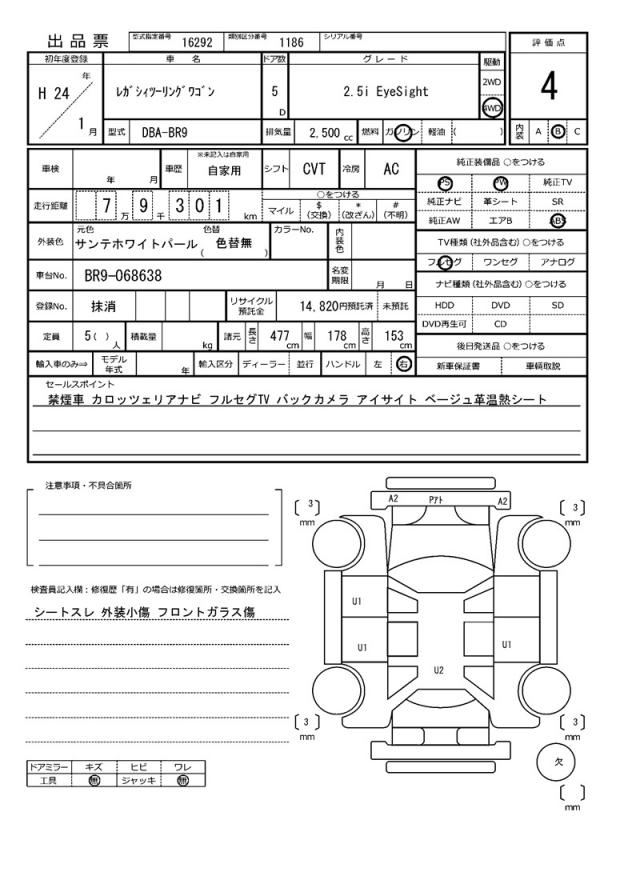 出品票 型式指定番号 16292 類別区分番号 1186 シリアル番号
初年度登録 車名 ドア数 グレード 駆動 評価点
H 24 年 1 月 ﾚｶﾞｼｨﾂｰﾘﾝｸﾞﾜｺﾞﾝ 5 D 2.5i EyeSight 2WD 4WD 4
型式 DBA-BR9 排気量 2,500 cc 燃料 ガソリン 軽油 ( ) 内装 A B C
車検 年 月 車歴 ※未記入は自家用 自家用 シフト CVT 冷房 AC
純正装備品 ○をつける
PS PW 純正TV
走行距離 7 万 9 千 3 0 1 km ○をつける マイル $ (交換) * (改ざん) # (不明)
純正ナビ 革シート SR
純正AW エアB ABS
外装色 元色 サンテホワイトパール 色替 ( 色替無 ) カラーNo. 内装色
TV種類 (社外品含む) ○をつける
フルセグ ワンセグ アナログ
車台No. BR9-068638 名変期限 月 日
ナビ種類 (社外品含む) ○をつける
登録No. 抹消 リサイクル預託金 14,820円預託済 未預託
HDD DVD SD
DVD再生可 CD
定員 5 ( ) 人 積載量 kg 諸元 長さ 477 cm 幅 178 cm 高さ 153 cm
後日発送品 ○をつける
輸入車のみ⇒ モデル年式 年 輸入区分 ディーラー 並行 ハンドル 左 右
新車保証書 車輌取説
セールスポイント
禁煙車 カロッツェリアナビ フルセグTV バックカメラ アイサイト ベージュ革温熱シート
注意事項・不具合箇所
検査員記入欄：修復歴「有」の場合は修復箇所・交換箇所を記入
シートスレ 外装小傷 フロントガラス傷
ドアミラー キズ ヒビ ワレ
工具 無 ジャッキ 無
3 mm A2 Pｱﾄ A2 3 mm
U1
U1 U1
U2
3 mm 3 mm
欠
mm